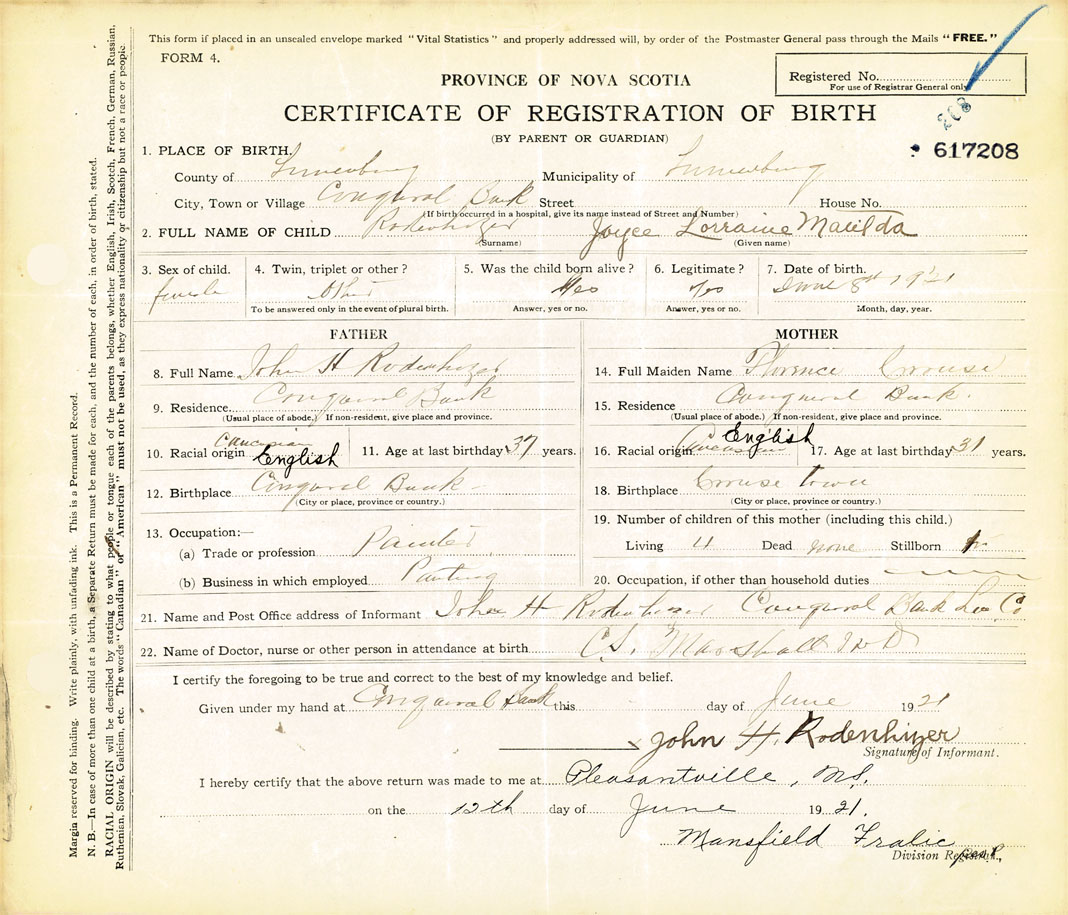 This form if placed in an unsealed envelope marked "Vital Statistics" and properly addressed will, by order of the Postmaster General pass through the Mails "FREE."
FORM 4.
PROVINCE OF NOVA SCOTIA
Registered No.
For use of Registrar General only
CERTIFICATE OF REGISTRATION OF BIRTH
208
(BY PARENT OR GUARDIAN)
617208
1. PLACE OF BIRTH.
County of Lunenburg Municipality of Lunenburg
City, Town or Village Conquerol Bank Street House No.
(If birth occurred in a hospital, give its name instead of Street and Number)
2. FULL NAME OF CHILD Rodenhizer Joyce Lorraine Matilda
(Surname) (Given name)
3. Sex of child. 4. Twin, triplet or other? 5. Was the child born alive? 6. Legitimate? 7. Date of birth.
female Yes Yes June 8st 1921
To be answered only in the event of plural birth. Answer, yes or no. Answer, yes or no. Month, day, year.
FATHER MOTHER
8. Full Name John H Rodenhizer 14. Full Maiden Name Florence Crouse
9. Residence Conquerol Bank 15. Residence Conquerol Bank.
(Usual place of abode.) If non-resident, give place and province. (Usual place of abode.) If non-resident, give place and province.
10. Racial origin Caucasian English 11. Age at last birthday 37 years. 16. Racial origin Caucasian English 17. Age at last birthday 31 years.
12. Birthplace Conquerol Bank 18. Birthplace Crouse town
(City or place, province or country.) (City or place, province or country.)
13. Occupation:— 19. Number of children of this mother (including this child.)
(a) Trade or profession Painter Living 4 Dead none Stillborn
(b) Business in which employed Painting 20. Occupation, if other than household duties
21. Name and Post Office address of Informant John H Rodenhizer Conquerol Bank Lun Co
22. Name of Doctor, nurse or other person in attendance at birth C.S. Marshall M D
I certify the foregoing to be true and correct to the best of my knowledge and belief.
Given under my hand at Conquerol Bank this day of June 1921
John H. Rodenhizer
Signature of Informant.
I hereby certify that the above return was made to me at Pleasantville, N.S.
on the 12th day of June 1921.
Mansfield Fralic
Division Registrar.
Margin reserved for binding. Write plainly, with unfading ink. This is a Permanent Record.
N. B.—In case of more than one child at a birth, a Separate Return must be made for each, and the number of each, in order of birth, stated.
RACIAL ORIGIN will be described by stating to what people or tongue each of the parents belongs, whether English, Irish, Scotch, French, German, Russian,
Ruthenian, Slovak, Galician, etc. The words "Canadian" or "American" must not be used, as they express nationality or citizenship but not a race or people